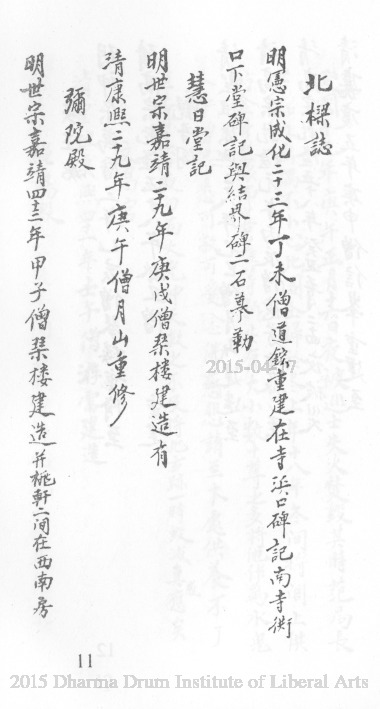 北樑誌
明憲宗成化二十三年丁未僧道錝重建在寺浜口碑記南寺衖
口下堂碑記與結界碑二石摹勒
慧日堂記
明世宗嘉靖二十九年庚戌僧琹樓建造有
清康熙二十九年庚午僧月山重修
彌陀殿
明世宗嘉靖四十三年甲子僧琹樓建造并桃軒二间在西南房
2015-04-17
11
2015 Dharma Drum Institute of Liberal Arts